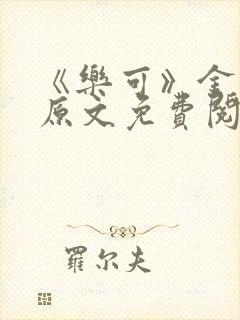 《樂可》全
原文免費閱
羅尔夫